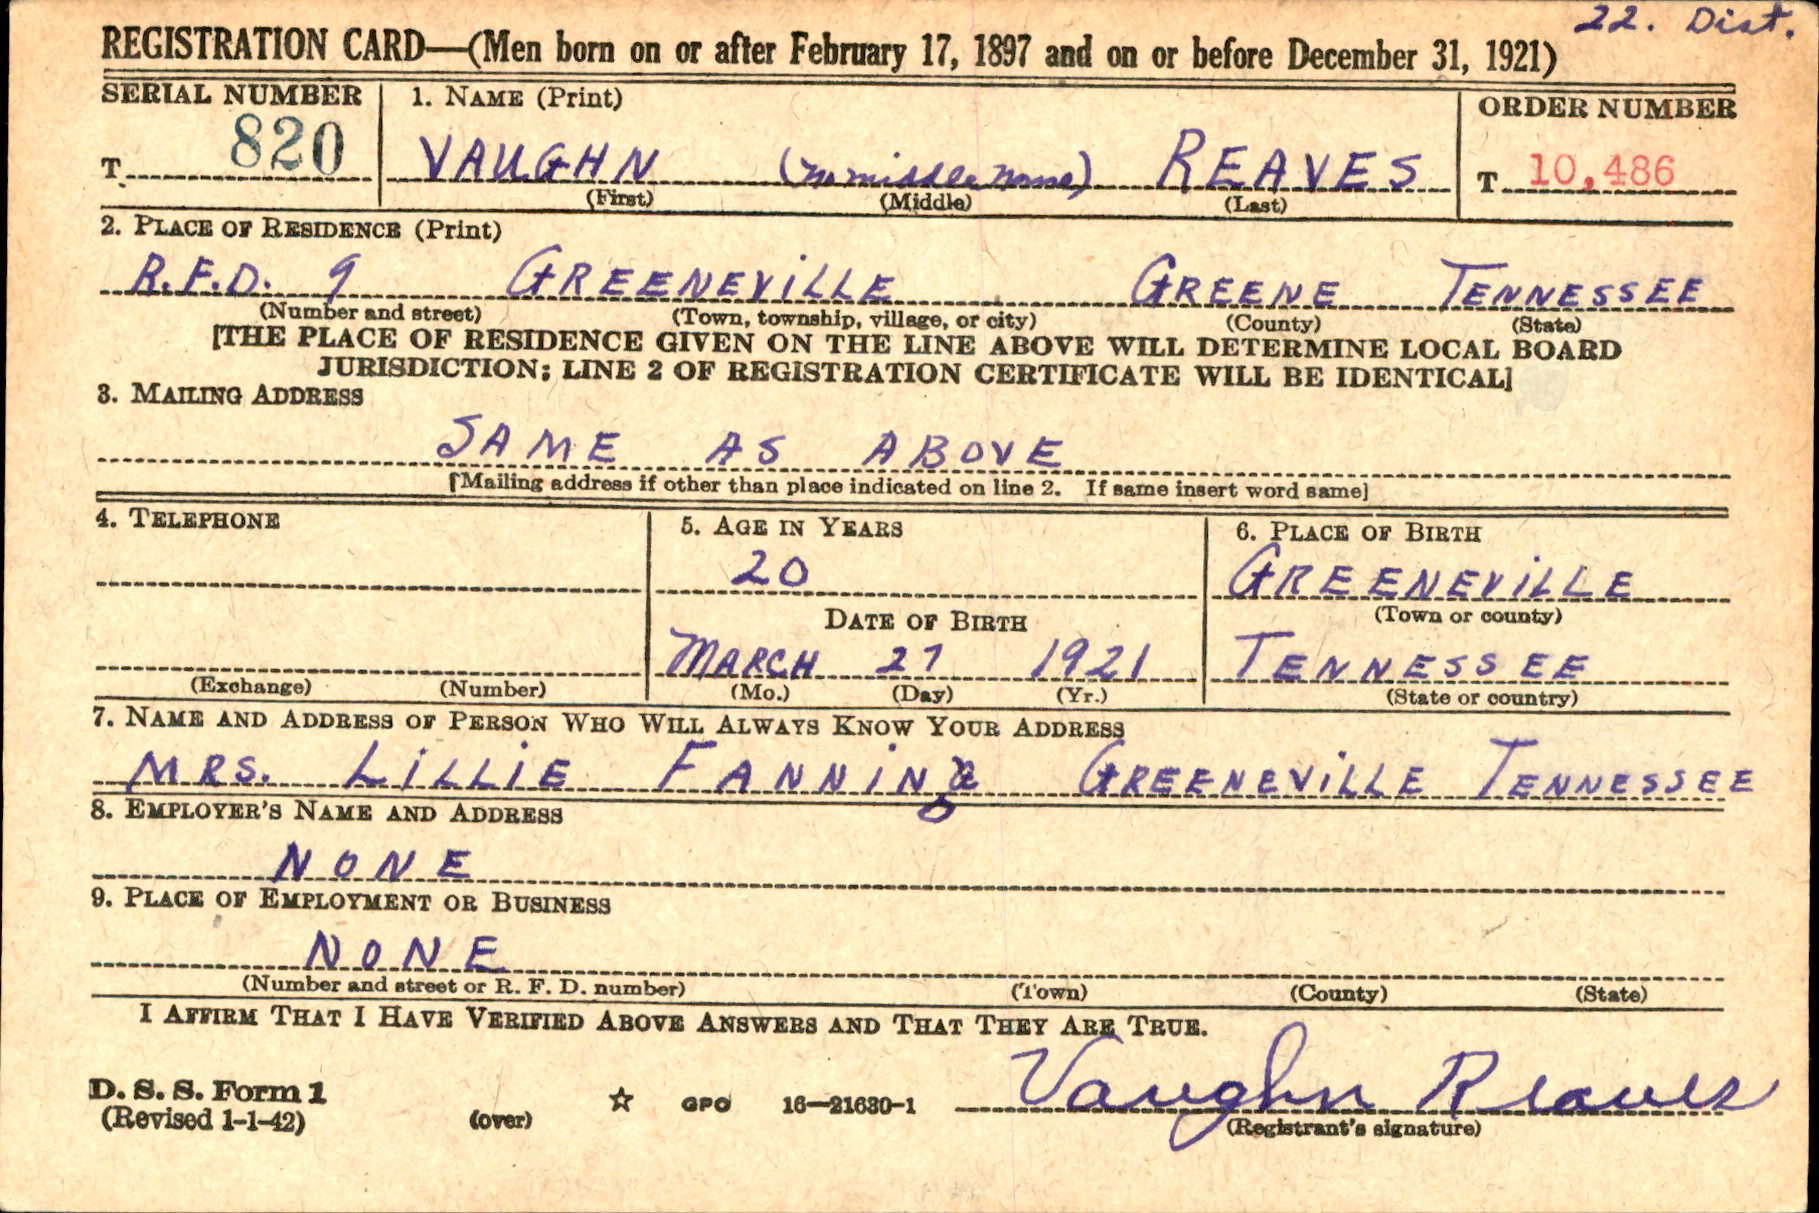 22. Dist.
REGISTRATION CARD—(Men born on or after February 17, 1897 and on or before December 31, 1921)
SERIAL NUMBER 1. NAME (Print) ORDER NUMBER
T 820 VAUGHN (no middle name) REAVES T 10,486
(First) (Middle) (Last)
2. PLACE OF RESIDENCE (Print)
R.F.D. 9 GREENEVILLE GREENE TENNESSEE
(Number and street) (Town, township, village, or city) (County) (State)
[THE PLACE OF RESIDENCE GIVEN ON THE LINE ABOVE WILL DETERMINE LOCAL BOARD
JURISDICTION; LINE 2 OF REGISTRATION CERTIFICATE WILL BE IDENTICAL]
3. MAILING ADDRESS
SAME AS ABOVE
[Mailing address if other than place indicated on line 2. If same insert word same]
4. TELEPHONE 5. AGE IN YEARS 6. PLACE OF BIRTH
20 GREENEVILLE
DATE OF BIRTH (Town or county)
MARCH 27 1921 TENNESSEE
(Exchange) (Number) (Mo.) (Day) (Yr.) (State or country)
7. NAME AND ADDRESS OF PERSON WHO WILL ALWAYS KNOW YOUR ADDRESS
MRS. LILLIE FANNING GREENEVILLE TENNESSEE
8. EMPLOYER'S NAME AND ADDRESS
NONE
9. PLACE OF EMPLOYMENT OR BUSINESS
NONE
(Number and street or R. F. D. number) (Town) (County) (State)
I AFFIRM THAT I HAVE VERIFIED ABOVE ANSWERS AND THAT THEY ARE TRUE.
D. S. S. Form 1
(Revised 1-1-42) (over) GPO 16—21630-1 Vaughn Reaves
(Registrant's signature)